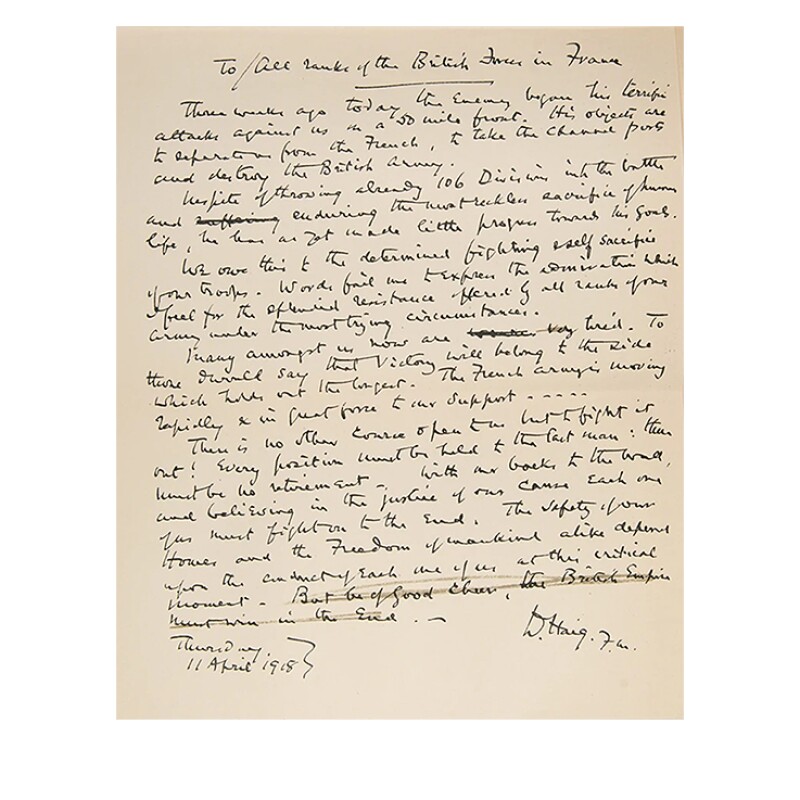 To/All ranks of the British Forces in France
Three weeks ago today the Enemy began his terrific
attacks against us on a 50 mile front. His objects are
to separate us from the French, to take the Channel ports
and destroy the British Army.
Inspite of throwing already 106 Divisions into the battle
and enduring the most reckless sacrifice of human
life, he has as yet made little progress towards his goals.
We owe this to the determined fighting & self sacrifice
of our troops. Words fail me to Express the admiration which
I feel for the splendid resistance offered by all ranks of our
army under the most trying circumstances.
Many amongst us now are tired. To
those I would say that Victory will belong to the side
which holds out the longest. The French army is moving
rapidly & in great force to our support - - - - -
There is no other course open to us but to fight it
out! Every position must be held to the last man: there
must be no retirement. With our backs to the wall,
and believing in the justice of our cause Each one
of us must fight on to the End. The safety of our
Homes and the Freedom of mankind alike depend
upon the conduct of Each one of us at this critical
moment. But be of Good cheer, the British Empire
must win in the End. —
D. Haig. F.M.
Thursday.
11 April 1918